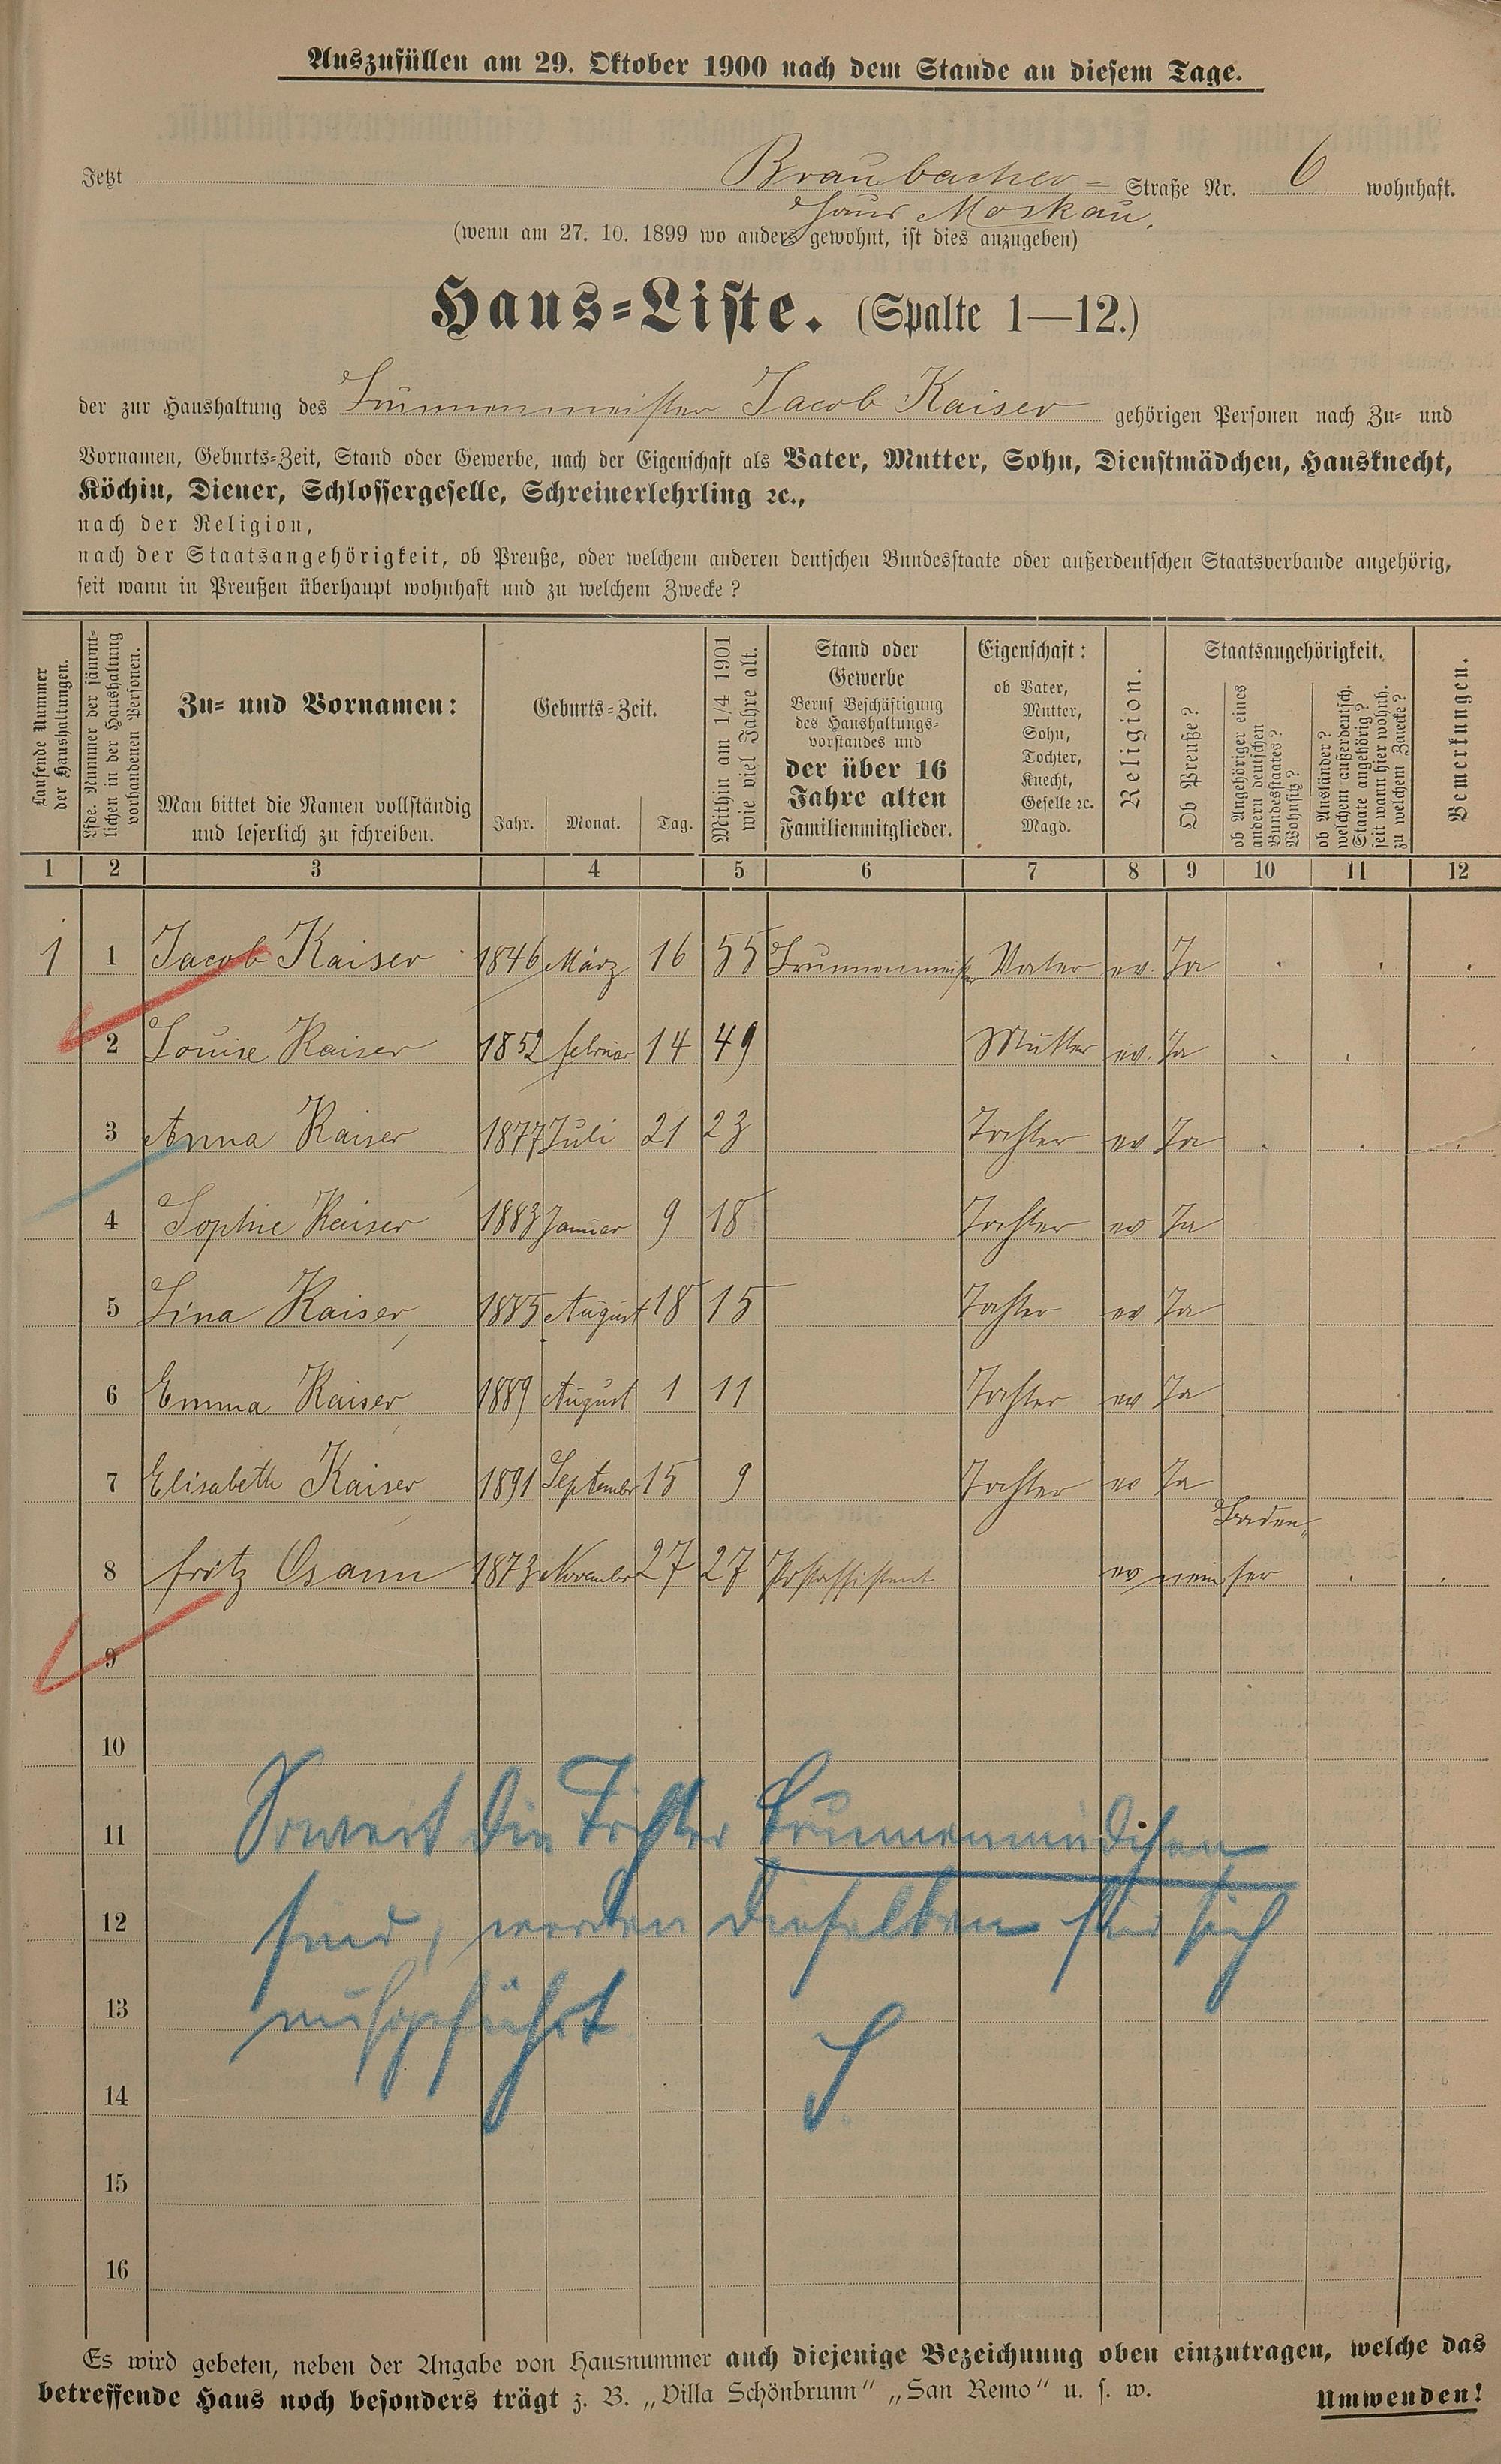 Auszufüllen am 29. Oktober 1900 nach dem Stande an diesem Tage.
Jetzt Braubacher- Straße Nr. 6 wohnhaft.
Haus Moskau.
(wenn am 27. 10. 1899 wo anders gewohnt, ist dies anzugeben)
Haus-Liste. (Spalte 1—12.)
der zur Haushaltung des Brunnenmeister Jacob Kaiser gehörigen Personen nach Zu- und
Vornamen, Geburts-Zeit, Stand oder Gewerbe, nach der Eigenschaft als Vater, Mutter, Sohn, Dienstmädchen, Hausknecht,
Köchin, Diener, Schlossergeselle, Schreinerlehrling ꝛc.,
nach der Religion,
nach der Staatsangehörigkeit, ob Preuße, oder welchem anderen deutschen Bundesstaate oder außerdeutschen Staatsverbande angehörig,
seit wann in Preußen überhaupt wohnhaft und zu welchem Zwecke?
Laufende Nummer
der Haushaltungen.
Lfde. Nummer der sämmt-
lichen in der Haushaltung
vorhandenen Personen.
Zu- und Vornamen:
Man bittet die Namen vollständig
und leserlich zu schreiben.
Geburts-Zeit.
Jahr. Monat. Tag.
Mithin am 1/4 1901
wie viel Jahre alt.
Stand oder
Gewerbe
Beruf Beschäftigung
des Haushaltungs-
vorstandes und
der über 16
Jahre alten
Familienmitglieder.
Eigenschaft:
ob Vater,
Mutter,
Sohn,
Tochter,
Knecht,
Geselle ꝛc.
Magd.
Religion.
Staatsangehörigkeit.
Ob Preuße?
ob Angehöriger eines
andern deutschen
Bundesstaates?
Wohnsitz?
ob Ausländer?
welchem außerdeutsch.
Staate angehörig?
seit wann hier wohnh.
zu welchem Zwecke?
Bemerkungen.
1 2 3 4 5 6 7 8 9 10 11 12
1 1 Jacob Kaiser 1846 März 16 55 Brunnenmeister Vater ev. Ja
2 Louise Kaiser 1852 februar 14 49 Mutter ev. Ja
3 Anna Kaiser 1877 Juli 21 23 Tochter ev Ja
4 Sophie Kaiser 1883 Januar 9 18 Tochter ev Ja
5 Lina Kaiser 1885 August 18 15 Tochter ev Ja
6 Emma Kaiser 1889 August 1 11 Tochter ev Ja
7 Elisabeth Kaiser 1891 September 15 9 Tochter ev Ja
8 fritz Osann 1873 November 27 27 Postassistent ev nein Baden-
ser
9
10
11 Soweit die Töchter Brunnenmädchen
12 sind, werden dieselben für sich
13 aufgeführt
14
15
16
Es wird gebeten, neben der Angabe von Hausnummer auch diejenige Bezeichnung oben einzutragen, welche das
betreffende Haus noch besonders trägt z. B. „Villa Schönbrunn“ „San Remo“ u. s. w.
Umwenden!